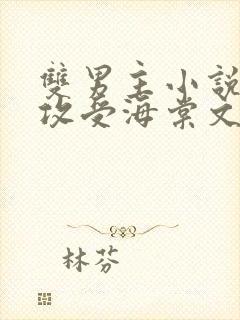 雙男主小說
攻受海棠文
林芬